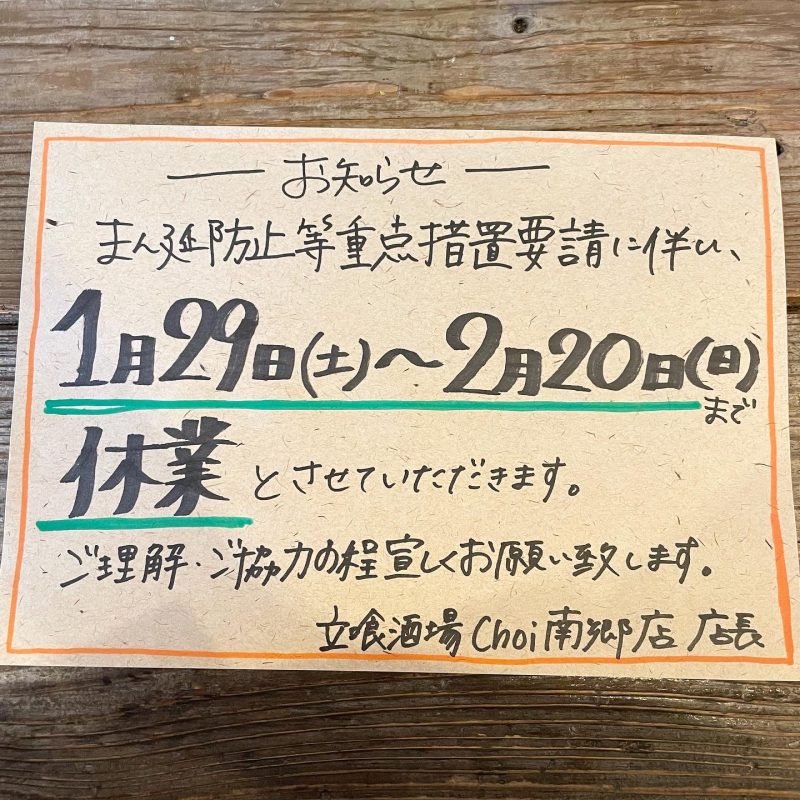 ― お知らせ ―
まん延防止等重点措置要請に伴い、
1月29日(土)～2月20日(日)
まで
休業とさせていただきます。
ご理解・ご協力の程宜しくお願い致します。
立喰酒場Choi南郷店 店長